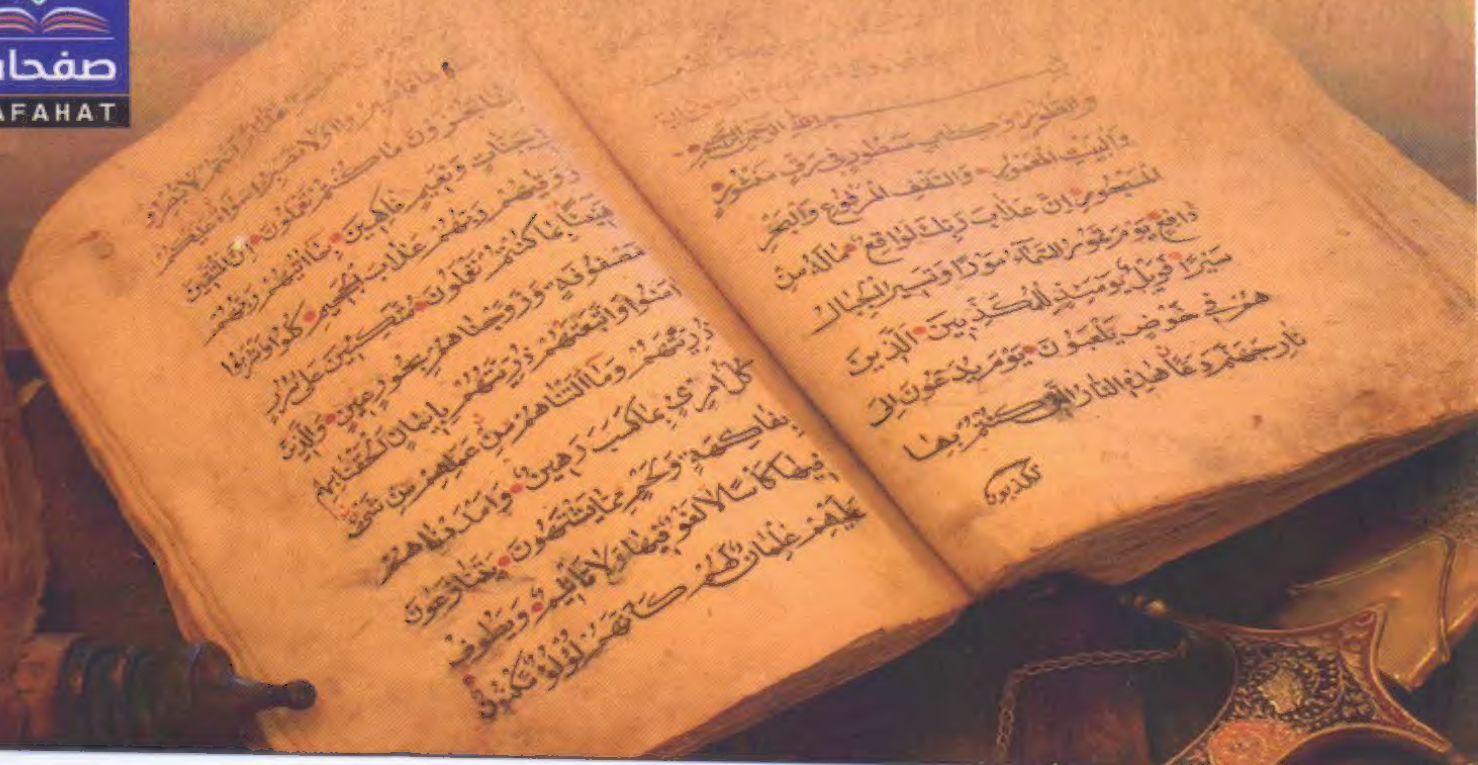 صفحات
AFAHAT
بسم الله الرحمن الرحيم
والطور وكتاب مسطور في رق منشور
والبيت المعمور والسقف المرفوع والبحر
المسجور ان عذاب ربك لواقع ماله من
دافع يوم تمور السماء مورا وتسير الجبال
سيرا فويل يومئذ للمكذبين الذين
هم في خوض يلعبون يوم يدعون الى
نار جهنم دعا هذه النار التي كنتم بها
تكذبون
عليكم
انما تجزون ما كنتم تعملون ان المتقين
في جنات ونعيم فاكهين بما اتيهم ربهم
ووقيهم ربهم عذاب الجحيم كلوا واشربوا
هنيئا بما كنتم تعملون متكئين على سرر
مصفوفة وزوجناهم بحور عين والذين
امنوا واتبعتهم ذريتهم بايمان الحقنا بهم
ذريتهم وما التناهم من عملهم من شيء
كل امرئ بما كسب رهين وامددناهم
بفاكهة ولحم مما يشتهون يتنازعون
فيها كأسا لا لغو فيها ولا تأثيم ويطوف
عليهم غلمان لهم كانهم لؤلؤ مكنون